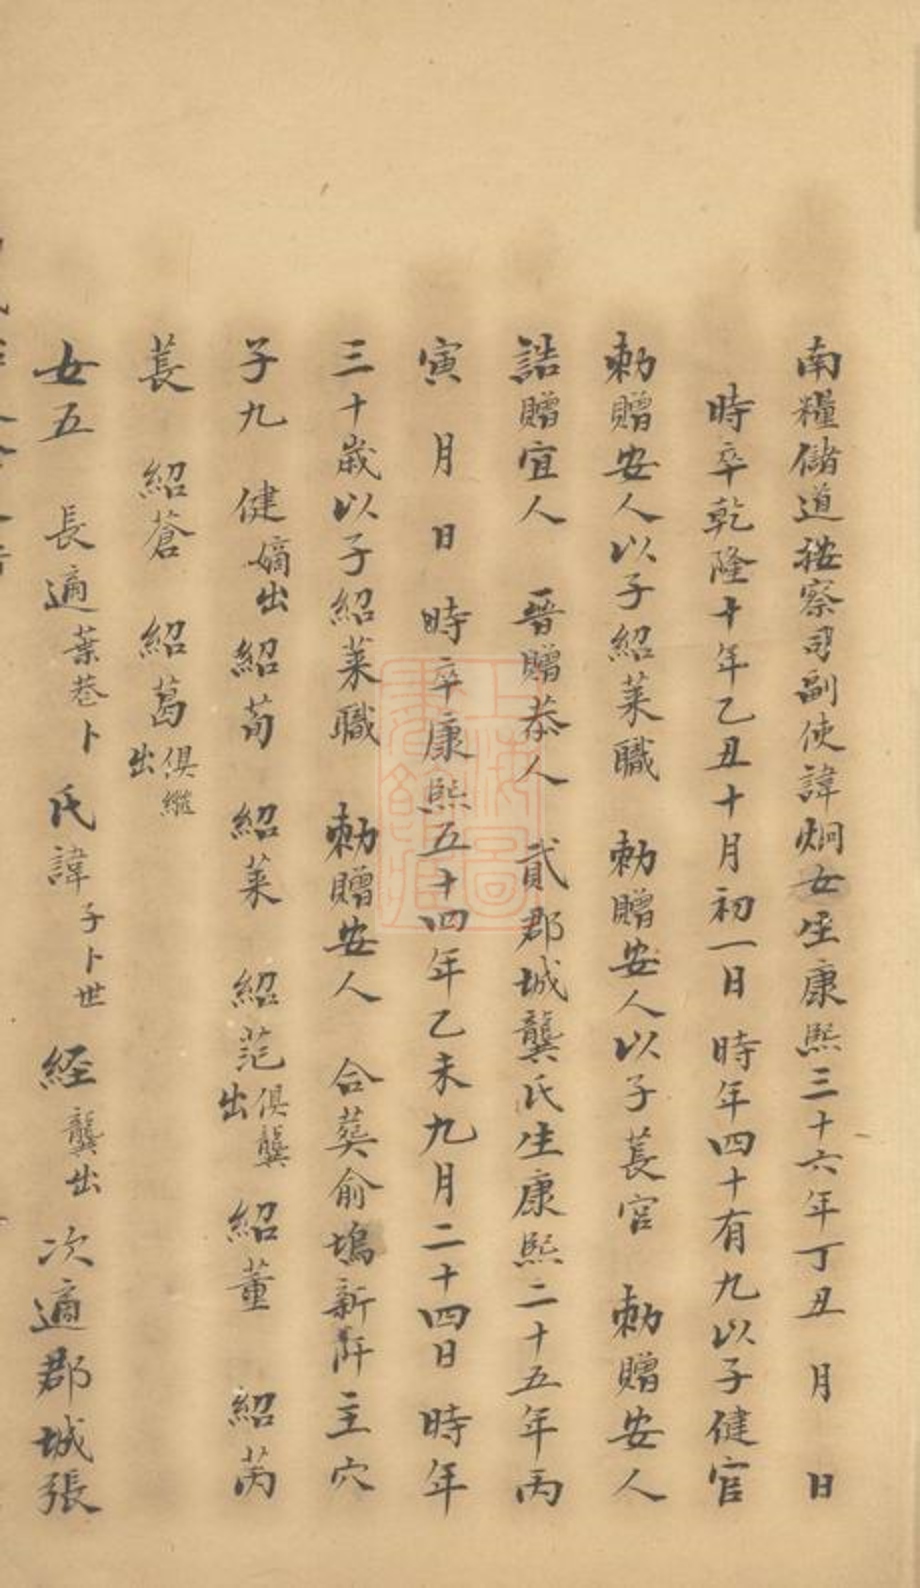 南糧儲道按察司副使諱炯女生康熙三十六年丁丑 月 日
時卒乾隆十年乙丑十月初一日 時年四十有九以子健官
勅贈安人以子紹萊職 勅贈安人以子萇官 勅贈安人
誥贈宜人 晉贈恭人 貳郡城龔氏生康熙二十五年丙
寅 月 日 時卒康熙五十四年乙未九月二十四日 時年
三十歲以子紹萊職 勅贈安人 合葵俞塢新阡主穴
子九 健嫡出 紹苟 紹萊 紹范俱龔出 紹董 紹芮
萇 紹蒼 紹葛俱繼出
女五 長適葉巷卜氏諱子卜世經龔出 次適郡城張